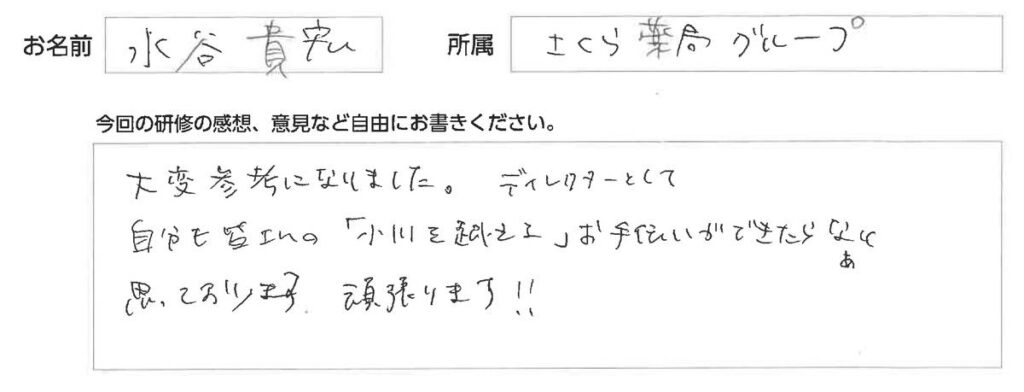 お名前 水谷 貴宏 所属 さくら薬局グループ
今回の研修の感想、意見など自由にお書きください。
大変参考になりました。 ディレクターとして
自分も皆さんの「小川を越える」お手伝いができたらなぁと
思っております 頑張ります!!